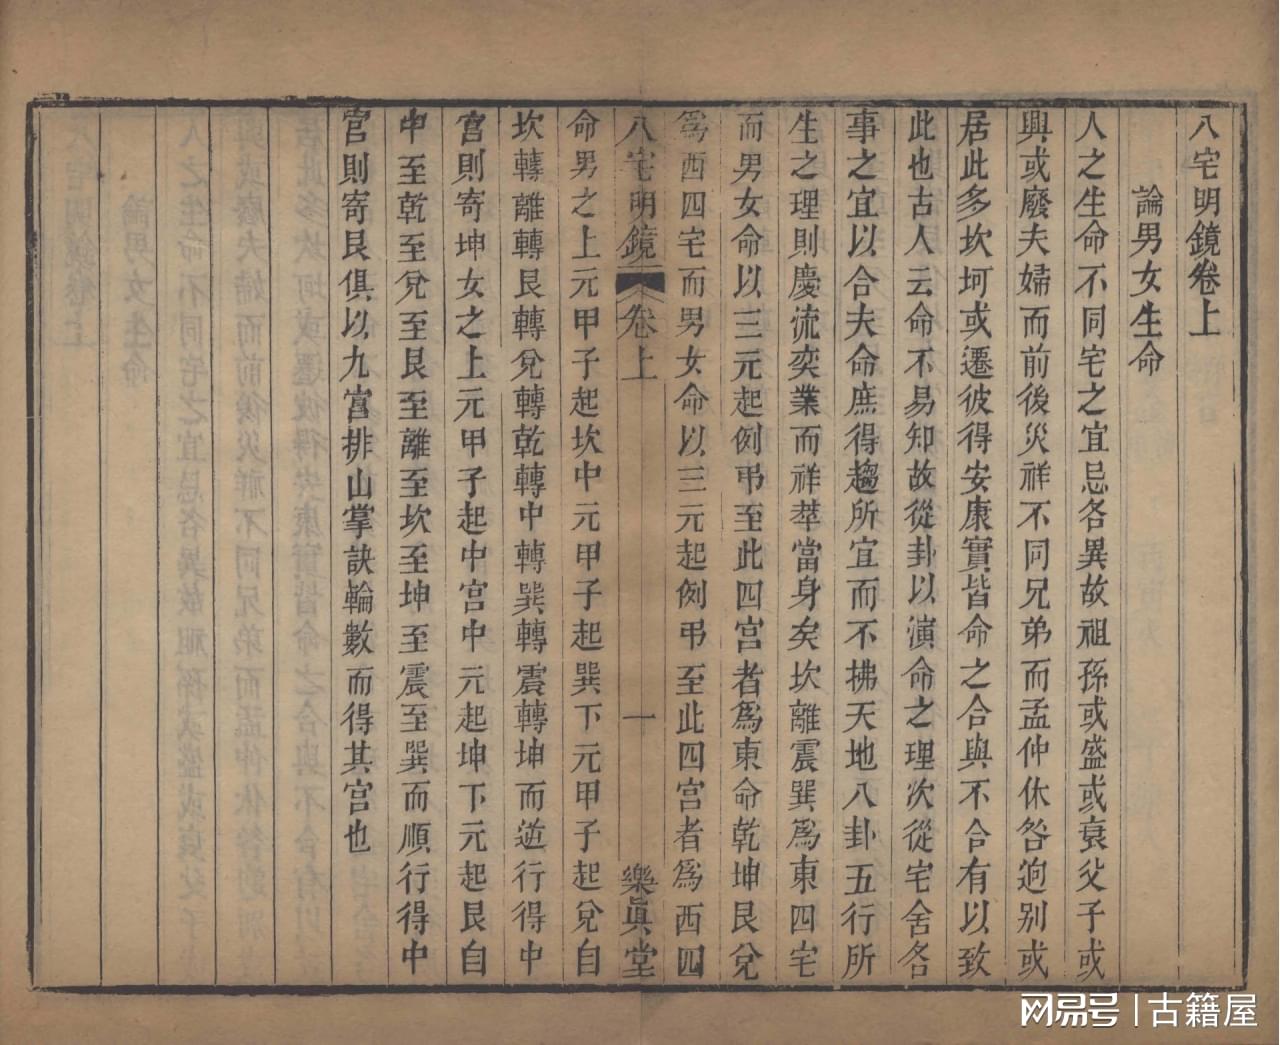 八宅明鏡卷上
論男女生命
人之生命不同宅之宜忌各異故祖孫或盛或衰父子或
興或廢夫婦而前後災祥不同兄弟而孟仲休咎逈別或
居此多坎坷或遷彼得安康實皆命之合與不合有以致
此也古人云命不易知故從卦以演命之理次從宅舍各
事之宜以合夫命庶得趨所宜而不拂天地八卦五行所
生之理則慶流奕業而祥萃當身矣坎離震巽爲東四宅
而男女命以三元起例弔至此四宮者爲東命乾坤艮兌
爲西四宅而男女命以三元起例弔至此四宮者爲西四
八宅明鏡 卷上 一 樂眞堂
命男之上元甲子起坎中元甲子起巽下元甲子起兌自
坎轉離轉艮轉兌轉乾轉中轉巽轉震轉坤而逆行得中
宮則寄坤女之上元甲子起中宮中元起坤下元起艮自
中至乾至兌至艮至離至坎至坤至震至巽而順行得中
宮則寄艮俱以九宮排山掌訣輪數而得其宮也
網易号 | 古籍屋